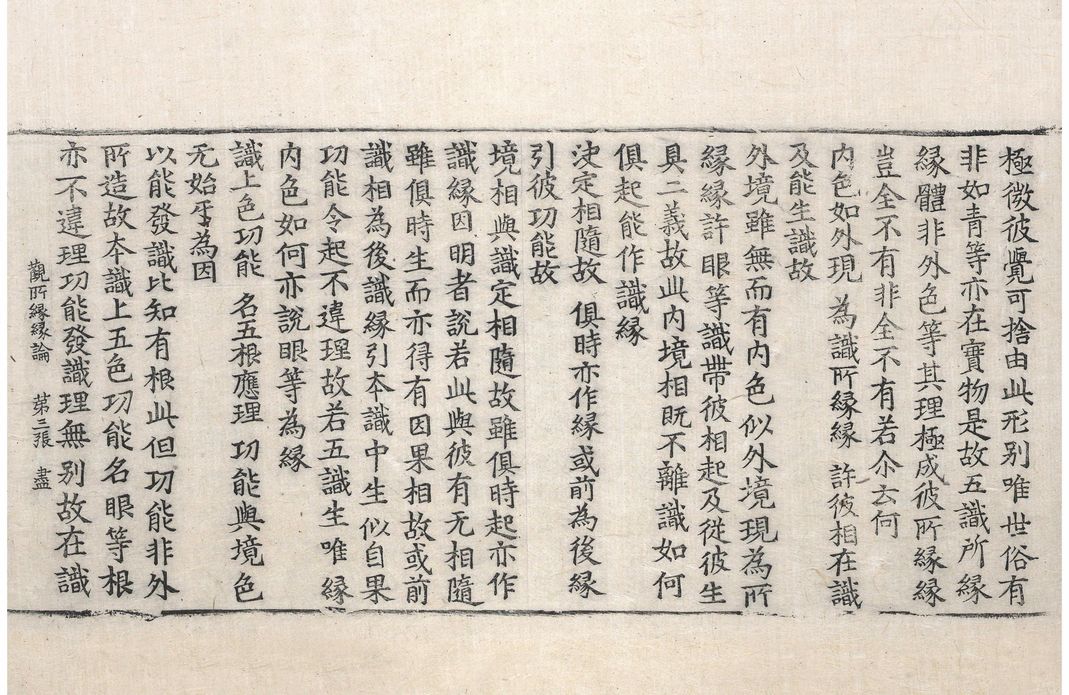 極微彼覺可捨由此形別唯世俗有
非如青等亦在實物是故五識所緣
緣體非外色等其理極成彼所緣緣
豈全不有非全不有若尒云何
內色如外現 為識所緣緣 許彼相在識
及能生識故
外境雖無而有內色似外境現為所
緣緣許眼等識帶彼相起及從彼生
具二義故此內境相旣不離識如何
俱起能作識緣
决定相隨故 俱時亦作緣 或前為後緣
引彼功能故
境相與識定相隨故雖俱時起亦作
識緣因明者說若此與彼有无相隨
雖俱時生而亦得有因果相故或前
識相為後識緣引本識中生似自果
功能令起不違理故若五識生唯緣
內色如何亦說眼等為緣
識上色功能 名五根應理 功能與境色
无始㸦為因
以能發識比知有根此但功能非外
所造故本識上五色功能名眼等根
亦不違理功能發識理無別故在識
觀所緣緣論 第三張 盡